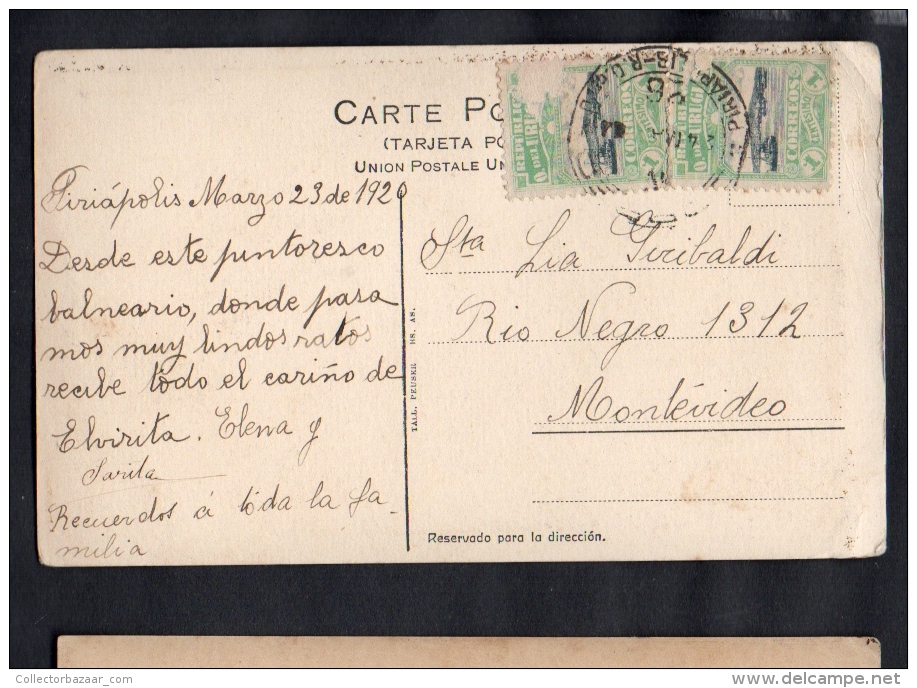 CARTE PO
(TARJETA PO
UNION POSTALE UN
REPUBLICA
O DEL URU
CORREOS
1 CENTESIMO 1
CORREOS
1 CENTESIMO 1
PIRIAP
Piriápolis Marzo 23 de 1920
Desde este puntoresco
balneario, donde pasa
mos muy lindos ratos
recibe todo el cariño de
Elvirita. Elena y
Sarita
Recuerdos á toda la fa-
milia
TALL. PEUSER BS. AS.
Sta Lia Giribaldi
Rio Negro 1312
Montevideo
Reservado para la dirección.
CollectorBazaar_com
www.delcampe.net